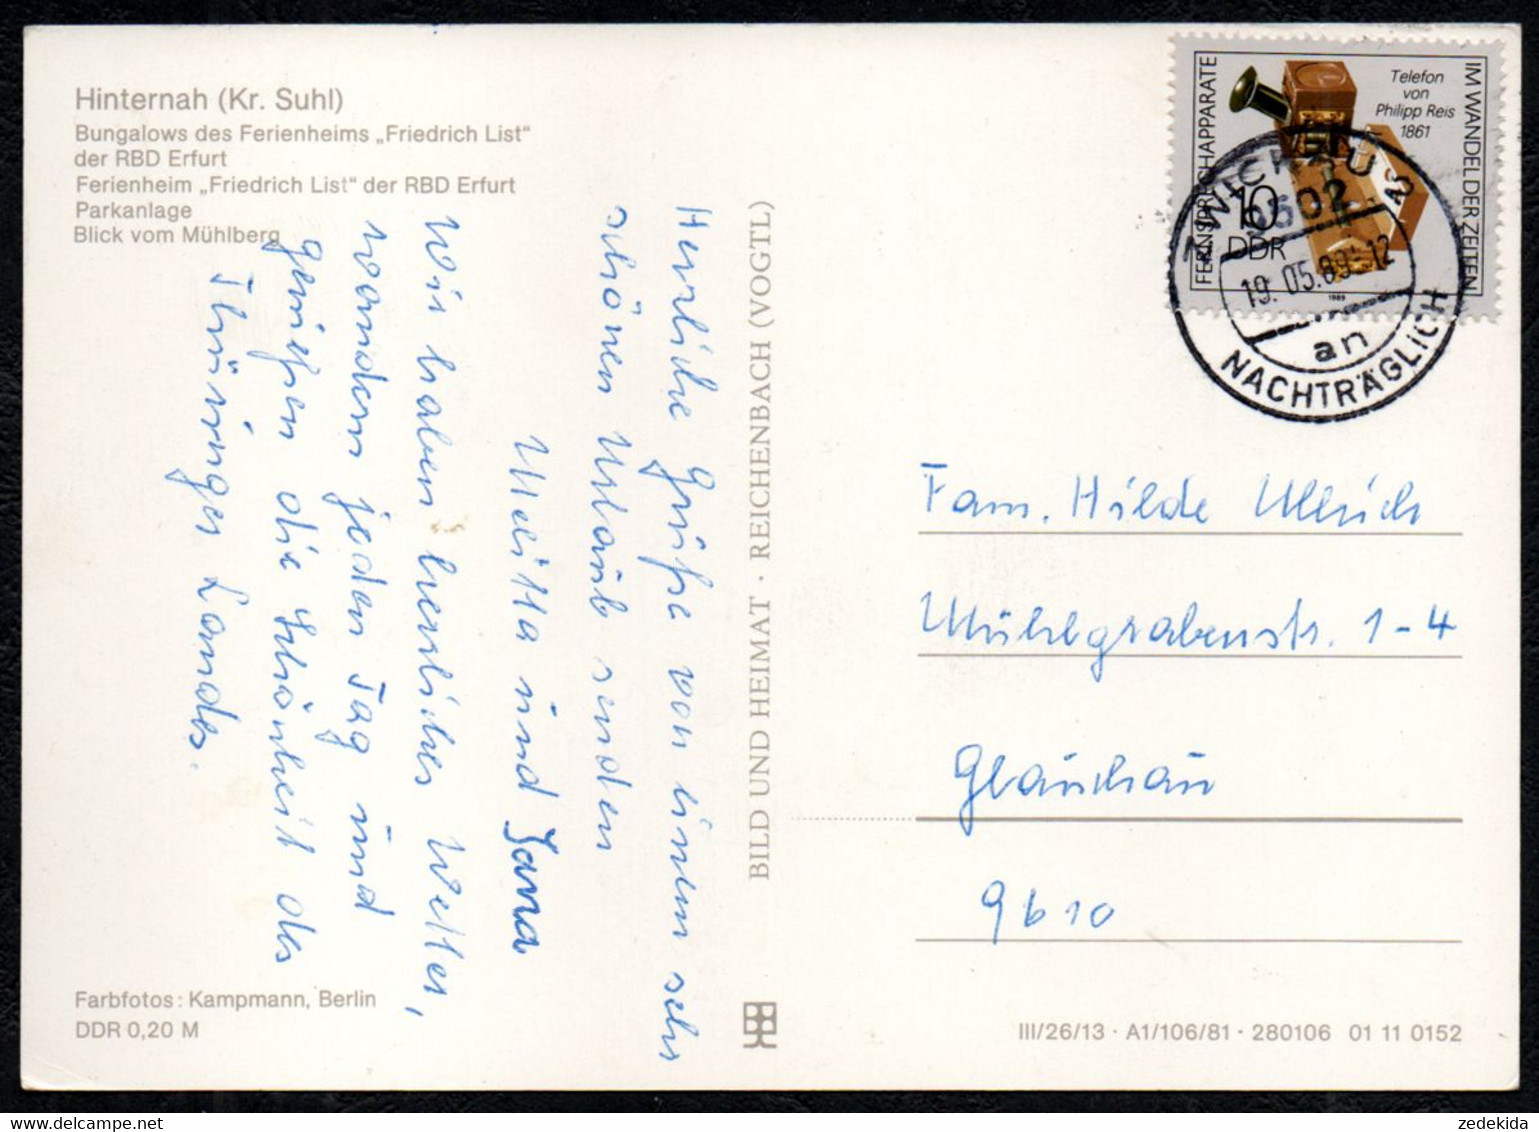 Hinternah (Kr. Suhl)
Bungalows des Ferienheims „Friedrich List“
der RBD Erfurt
Ferienheim „Friedrich List“ der RBD Erfurt
Parkanlage
Blick vom Mühlberg
Herrliche Grüße von einem sehr
schönen Urlaub senden
Meitta und Jana
Wir haben herrliches Wetter,
wandern jeden Tag und
genießen die Schönheit des
Thüringer Landes.
Farbfotos: Kampmann, Berlin
DDR 0,20 M
BILD UND HEIMAT · REICHENBACH (VOGTL)
FERNSPRECHAPPARATE
IM WANDEL DER ZEITEN
Telefon
von
Philipp Reis
1861
10
DDR
1989
ZWICKAU
19.05.89-12
an
NACHTRÄGLICH
Fam. Hilde Ullrich
Mühlgrabenstr. 1-4
Glauchau
9610
III/26/13 · A1/106/81 · 280106 01 11 0152
zedekida